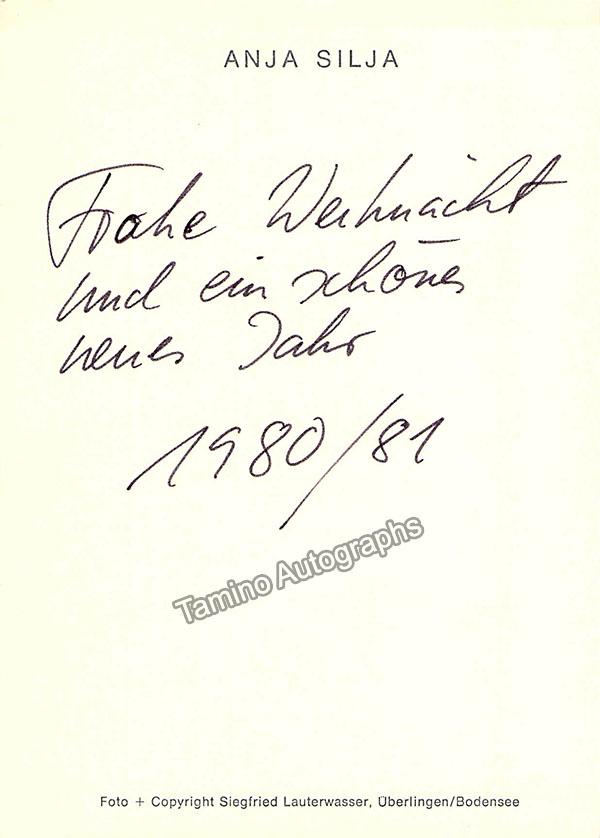 ANJA SILJA
Frohe Weihnacht
und ein schönes
neues Jahr
1980/81
Tamino Autographs
Foto + Copyright Siegfried Lauterwasser, Überlingen/Bodensee